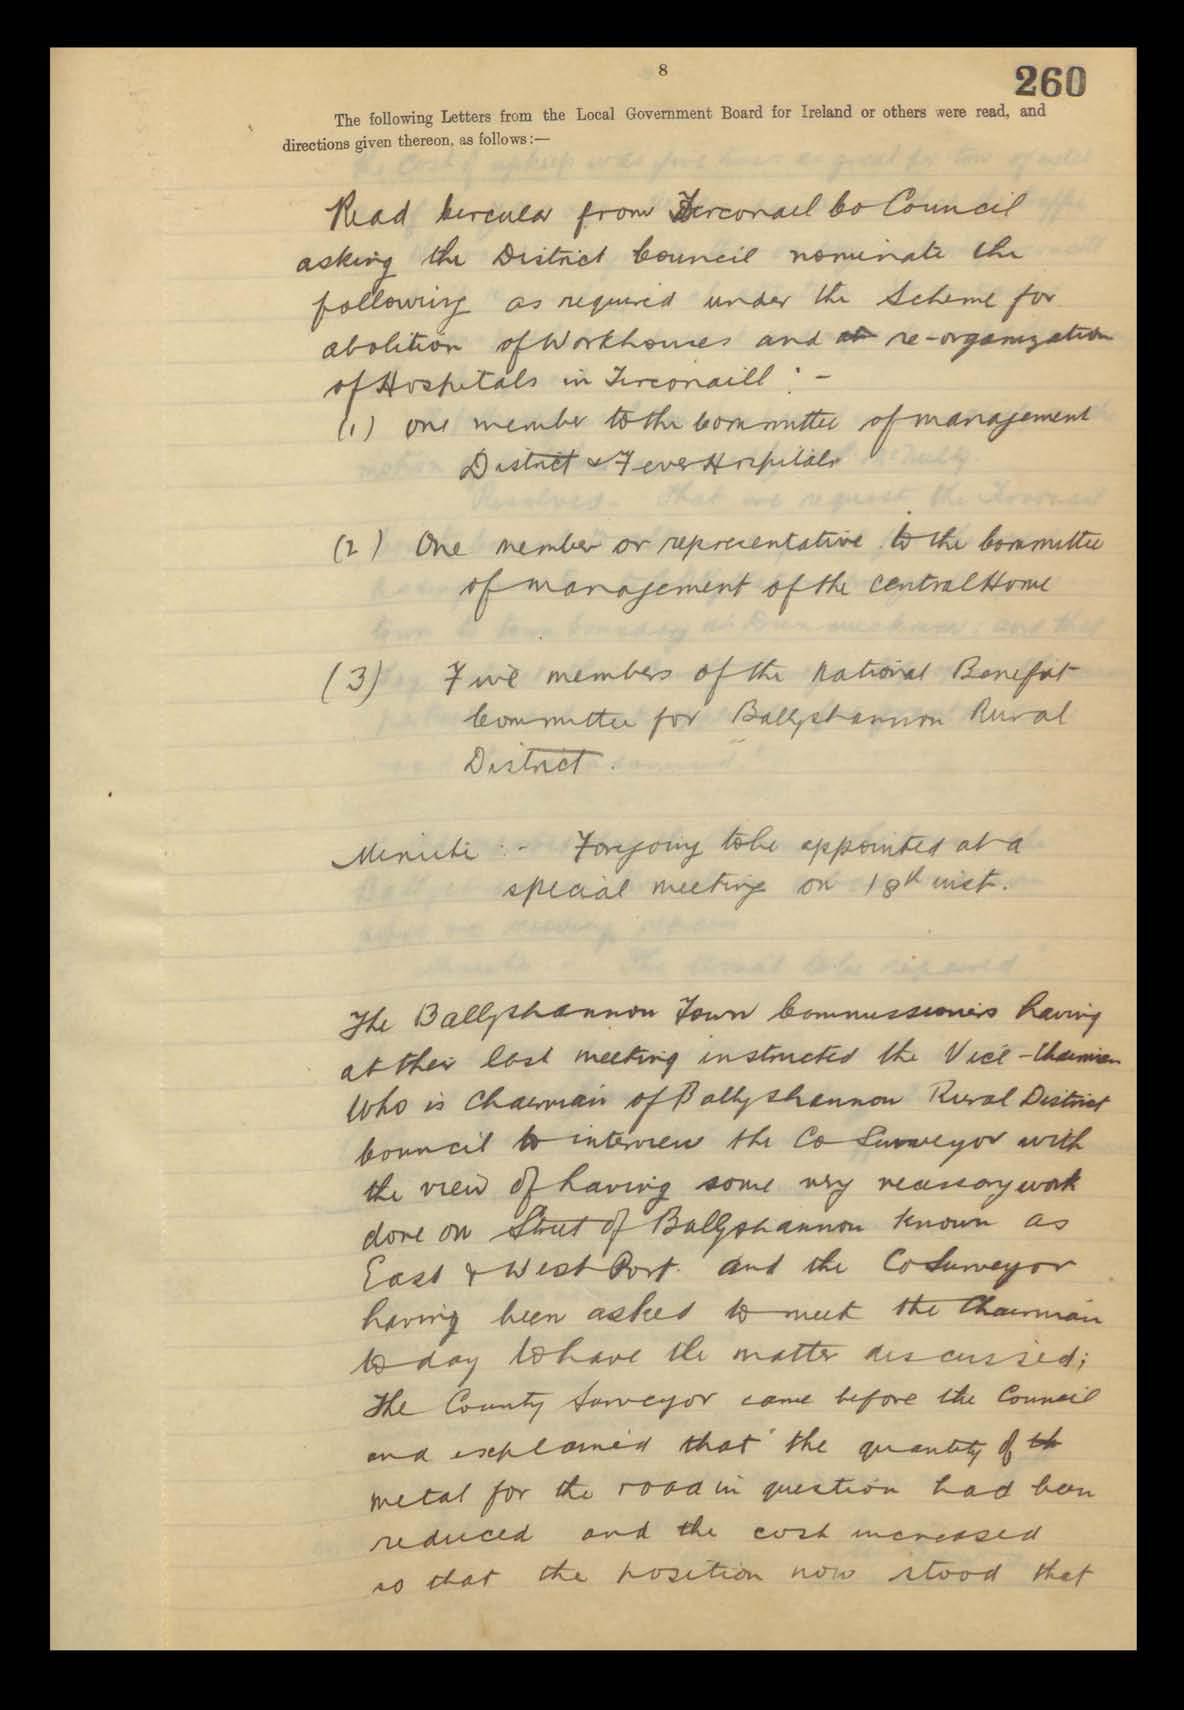 8
260
The following Letters from the Local Government Board for Ireland or others were read, and
directions given thereon, as follows:—
Read circular from Tirconaill Co Council
asking the District Council nominate the
following as required under the Scheme for
abolition of Workhouses and re-organization
of Hospitals in Tirconaill :-
(1) one member to the Committee of management
District & Fever Hospitals
(2) One member or representative to the Committee
of management of the central Home
(3) Five members of the National Benefit
Committee for Ballyshannon Rural
District.
Minute :- Foregoing to be appointed at a
special meeting on 18th inst.
The Ballyshannon Town Commissioners having
at their last meeting instructed the Vice-Chairman
Who is Chairman of Ballyshannon Rural District
Council to interview the Co Surveyor with
the view of having some very necessary work
done on Street of Ballyshannon known as
East & West Port. and the Co Surveyor
having been asked to meet the Chairman
to day to have the matter discussed;
The County Surveyor came before the Council
and explained that the quantity of
metal for the road in question had been
reduced and the cost increased
so that the position now stood that